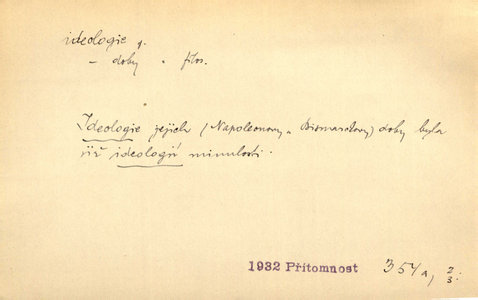 ideologie f.
– doby " filos.
Ideologie jejich (Napoleonovy a Bismarckovy) doby byla
již ideologií minulosti.
1932 Přítomnost 354a, 2
3.